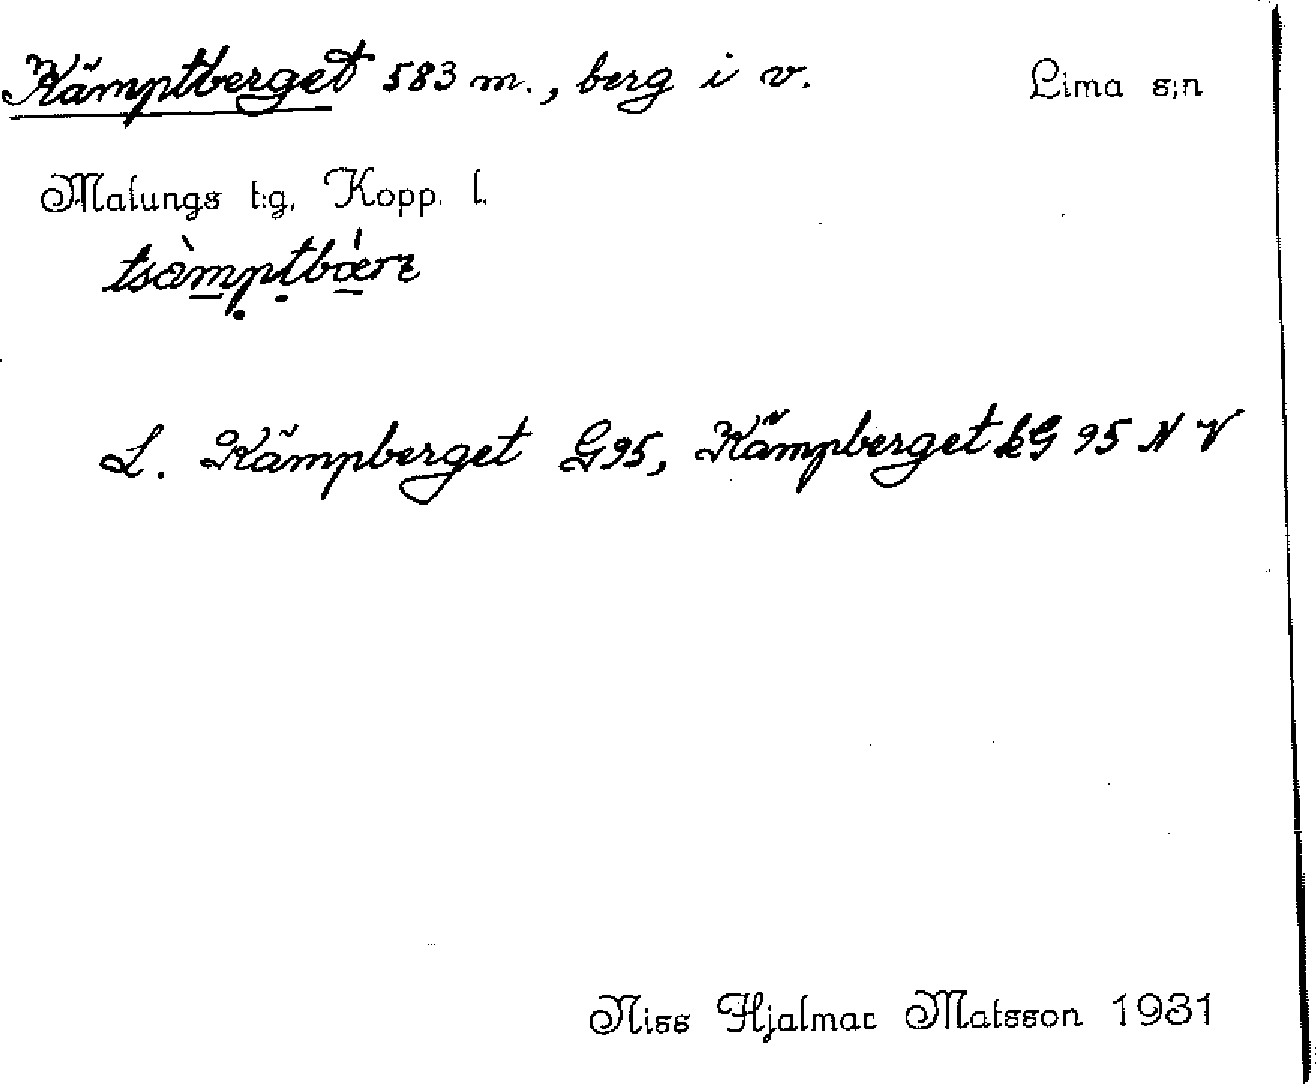 Kämptberget 583 m., berg i v. Lima s:n
Malungs t:g, Kopp. l.
L. Kämpberget G95, Kämpberget kG 95 NV
Niss Hjalmar Matsson 1931